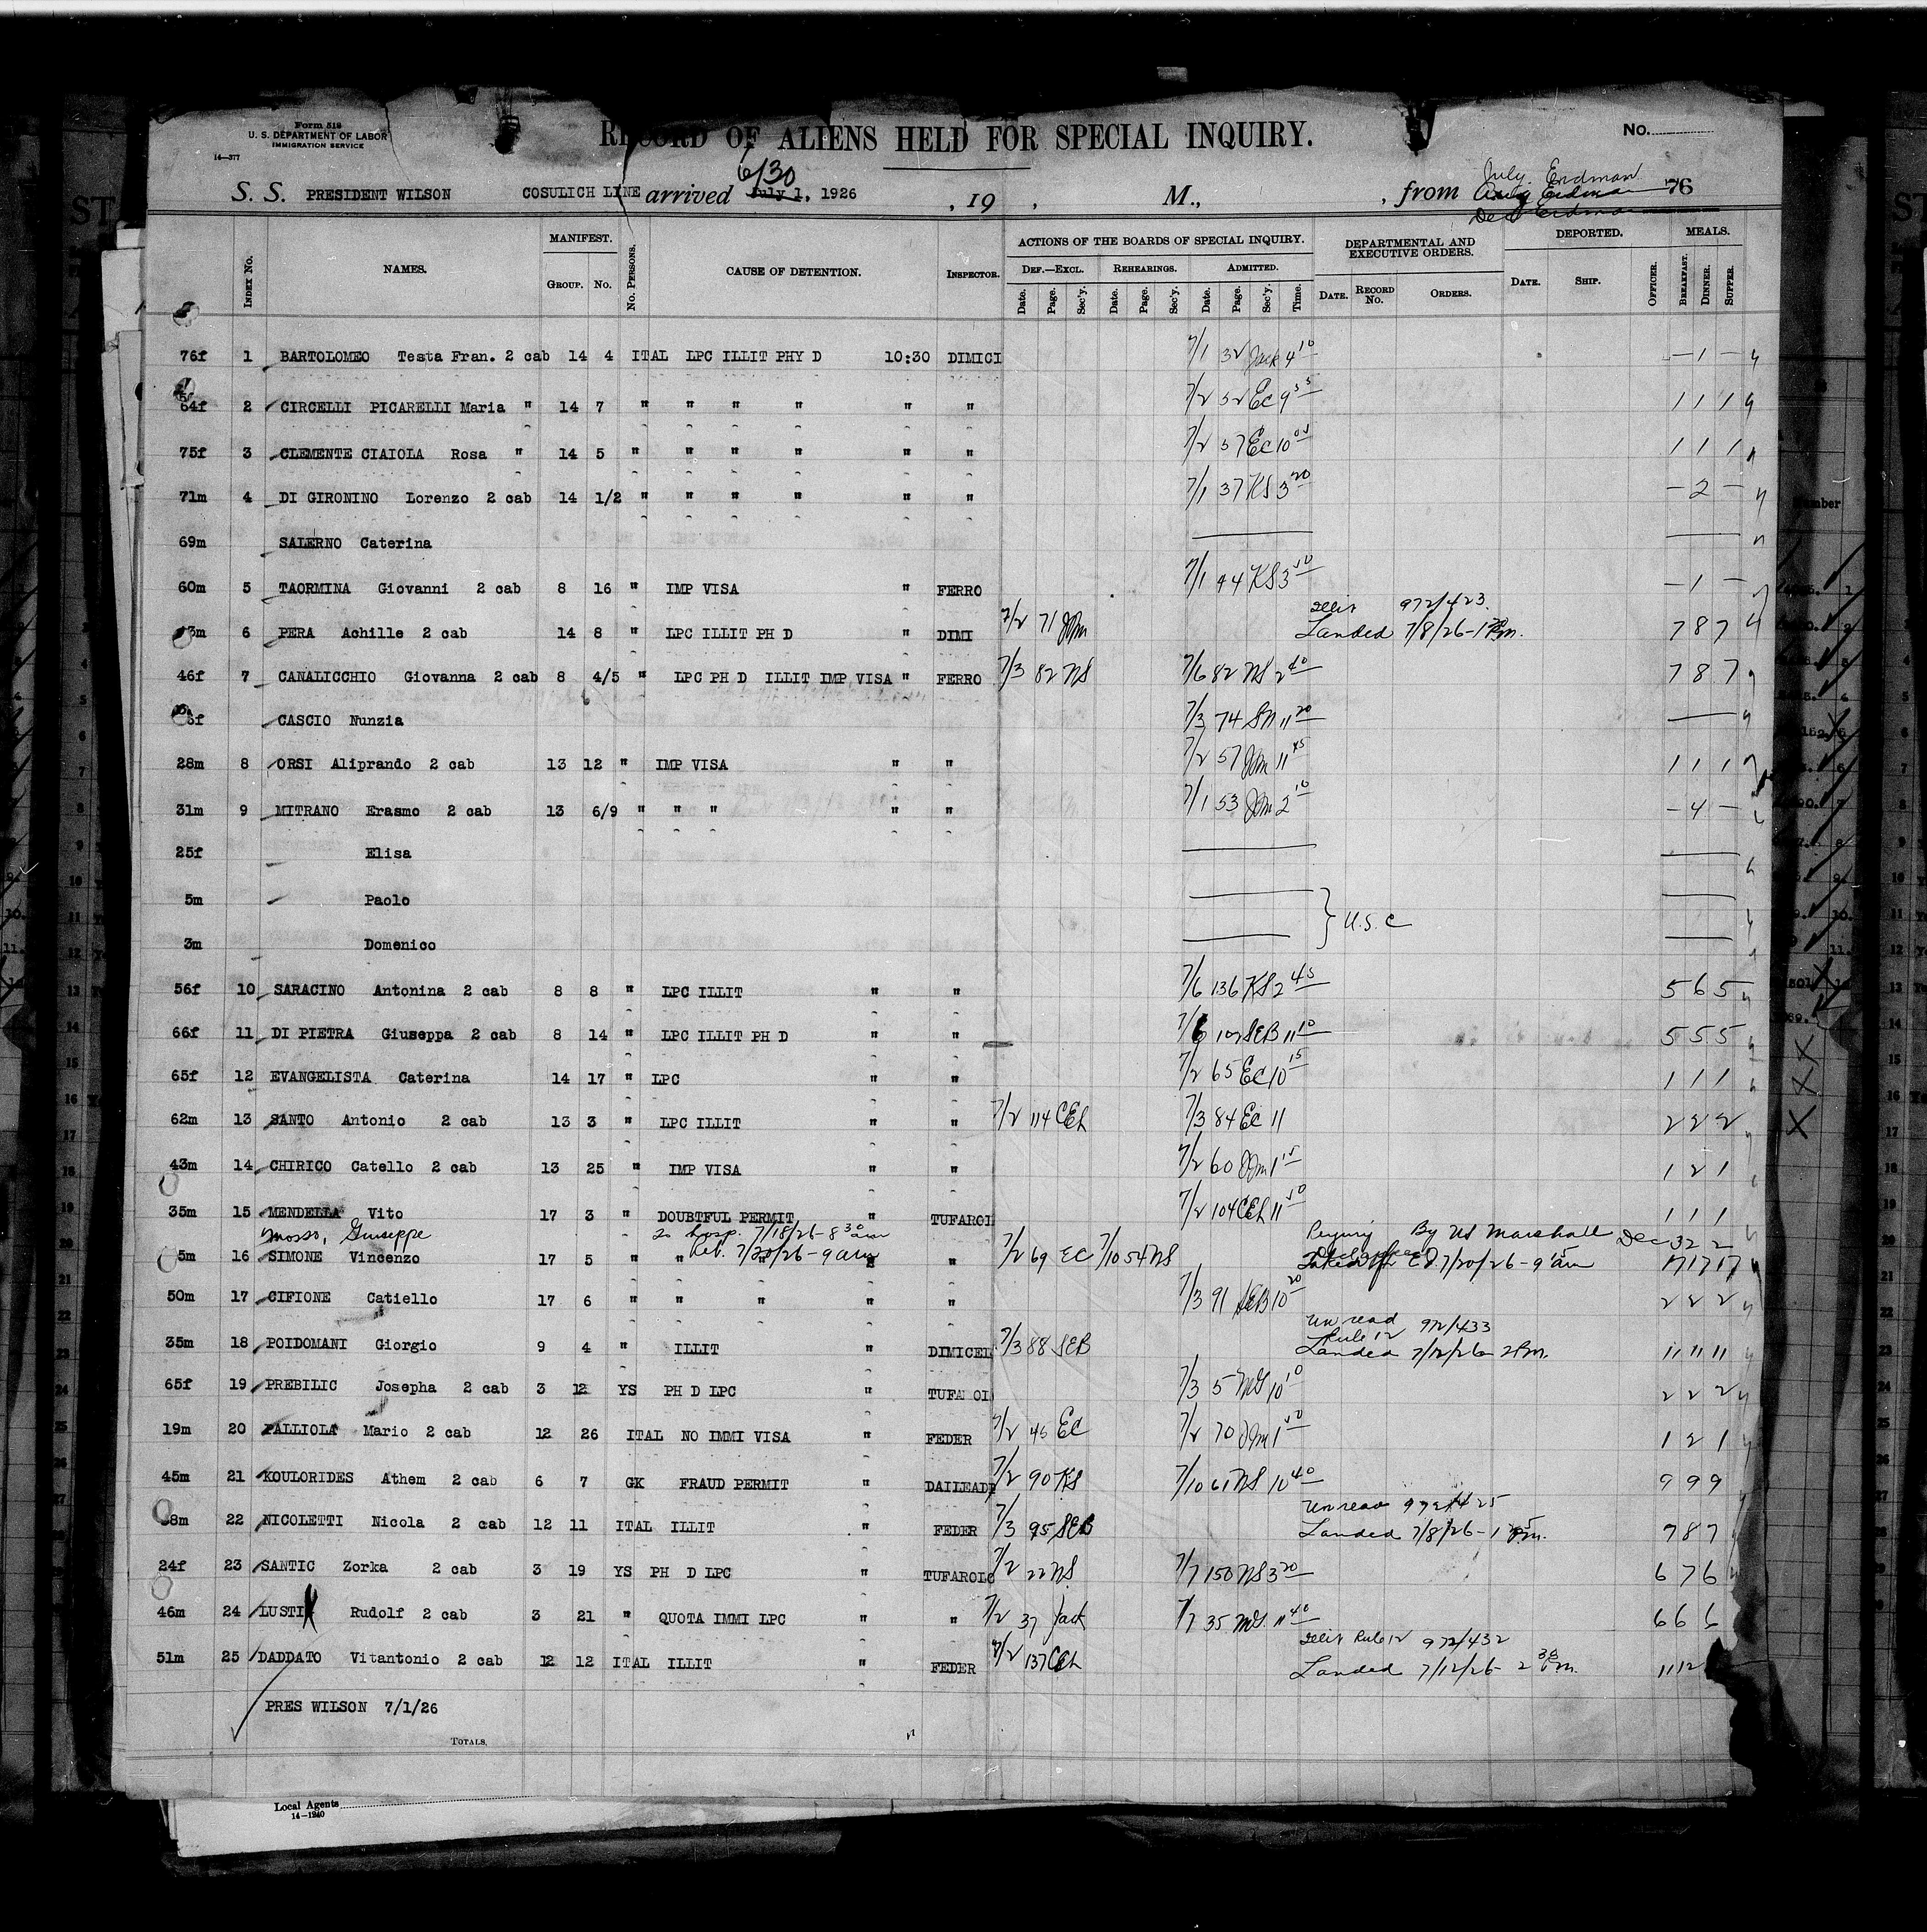 Form 518
U. S. DEPARTMENT OF LABOR
IMMIGRATION SERVICE
14—377
RECORD OF ALIENS HELD FOR SPECIAL INQUIRY.
No.
6/30
July. Erdman
S. S. PRESIDENT WILSON COSULICH LINE arrived July 1, 1926 , 19 , M., , from Aug Erdman 76
Dec Erdman
INDEX No. NAMES. MANIFEST. GROUP. No. No. PERSONS. CAUSE OF DETENTION. INSPECTOR. ACTIONS OF THE BOARDS OF SPECIAL INQUIRY. DEF.—EXCL. Date. Page. Sec'y. REHEARINGS. Date. Page. Sec'y. ADMITTED. Date. Page. Sec'y. Time. DEPARTMENTAL AND EXECUTIVE ORDERS. DATE. RECORD No. ORDERS. DEPORTED. DATE. SHIP. OFFICER. MEALS. BREAKFAST. DINNER. SUPPER.
76f 1 BARTOLOMEO Testa Fran. 2 cab 14 4 ITAL LPC ILLIT PHY D 10:30 DIMICI 7/1 32 Jack 4 10 — 1 —
64f 2 CIRCELLI PICARELLI Maria " 14 7 " " " " " " 7/2 52 EC 9 55 1 1 1
75f 3 CLEMENTE CIAIOLA Rosa " 14 5 " " " " " " 7/2 57 EC 10 1 1 1
71m 4 DI GIRONINO Lorenzo 2 cab 14 1/2 " " " " " " 7/1 37 KS 3 20 — 2 —
69m SALERNO Caterina
60m 5 TAORMINA Giovanni 2 cab 8 16 " IMP VISA " FERRO 7/1 44 KS 3 50 — 1 —
972/423
6 PERA Achille 2 cab 14 8 " LPC ILLIT PH D " DIMI 7/2 71 JJM Landed 7/8/26 - 1 pm. 7 8 7
46f 7 CANALICCHIO Giovanna 2 cab 8 4/5 " LPC PH D ILLIT IMP VISA " FERRO 7/3 82 NS 7/6 82 NS 2 40 7 8 7
CASCIO Nunzia 7/3 74 SN 11 20
28m 8 ORSI Aliprando 2 cab 13 12 " IMP VISA " " 7/2 57 JJM 11 45 1 1 1
31m 9 MITRANO Erasmo 2 cab 13 6/9 " " " " " 7/1 53 JJM 2 10 — 4 —
25f Elisa
5m Paolo
U.S.C
3m Domenico
56f 10 SARACINO Antonina 2 cab 8 8 " LPC ILLIT " " 7/6 136 KS 2 45 5 6 5
66f 11 DI PIETRA Giuseppa 2 cab 8 14 " LPC ILLIT PH D " " 7/6 102 SEB 11 10 5 5 5
65f 12 EVANGELISTA Caterina 14 17 " LPC " " 7/2 65 EC 10 15 1 1 1
62m 13 SANTO Antonio 2 cab 13 3 " LPC ILLIT " " 7/2 114 CEh 7/3 84 EC 11 2 2 2
43m 14 CHIRICO Catello 2 cab 13 25 " IMP VISA " " 7/2 60 JJM 1 15 1 2 1
35m 15 MENDELLA Vito 17 3 " DOUBTFUL PERMIT " TUFAROL 7/2 104 CEh 11 50 1 1 1
Mosso, Giuseppe To hosp. 7/18/26 - 8 30 am By US Marshall Dec 3 2 2
Ret. 7/20/26 - 9 am
5m 16 SIMONE Vincenzo 17 5 " " " " " 7/2 69 EC 7/10 54 NS 7/20/26 - 9 15 am 17 17 17
50m 17 CIFIONE Catiello 17 6 " " " " " 7/3 91 SEB 10 20 2 2 2
un read 972/433
Rule 12
35m 18 POIDOMANI Giorgio 9 4 " ILLIT " DIMICEL 7/3 88 SEB Landed 7/12/26 - 2 Pm. 11 11 11
65f 19 PREBILIC Josepha 2 cab 3 12 YS PH D LPC " TUFA OL 7/3 5 MG 10 10 2 2 2
19m 20 PALLIOLA Mario 2 cab 12 26 ITAL NO IMMI VISA " FEDER 7/2 45 EC 7/2 70 JJM 1 50 1 2 1
45m 21 KOULORIDES Athem 2 cab 6 7 GK FRAUD PERMIT " DAILEADE 7/2 90 KS 7/10 61 NS 10 40 9 9 9
Unread 972/425
38m 22 NICOLETTI Nicola 2 cab 12 11 ITAL ILLIT " FEDER 7/3 95 SEB Landed 7/8/26 - 1 pm. 7 8 7
24f 23 SANTIC Zorka 2 cab 3 19 YS PH D LPC " TUFAROLO 7/2 22 NS 7/7 150 NS 3 20 6 7 6
46m 24 LUSTI Rudolf 2 cab 3 21 " QUOTA IMMI LPC " " 7/2 37 Jack 7/7 35 MG 11 40 6 6 6
Rule 12 972/432
51m 25 DADDATO Vitantonio 2 cab 12 12 ITAL ILLIT " FEDER 7/2 137 CEh Landed 7/12/26 - 2 30 pm. 11 12
PRES WILSON 7/1/26
TOTALS.
Local Agents
14—1240